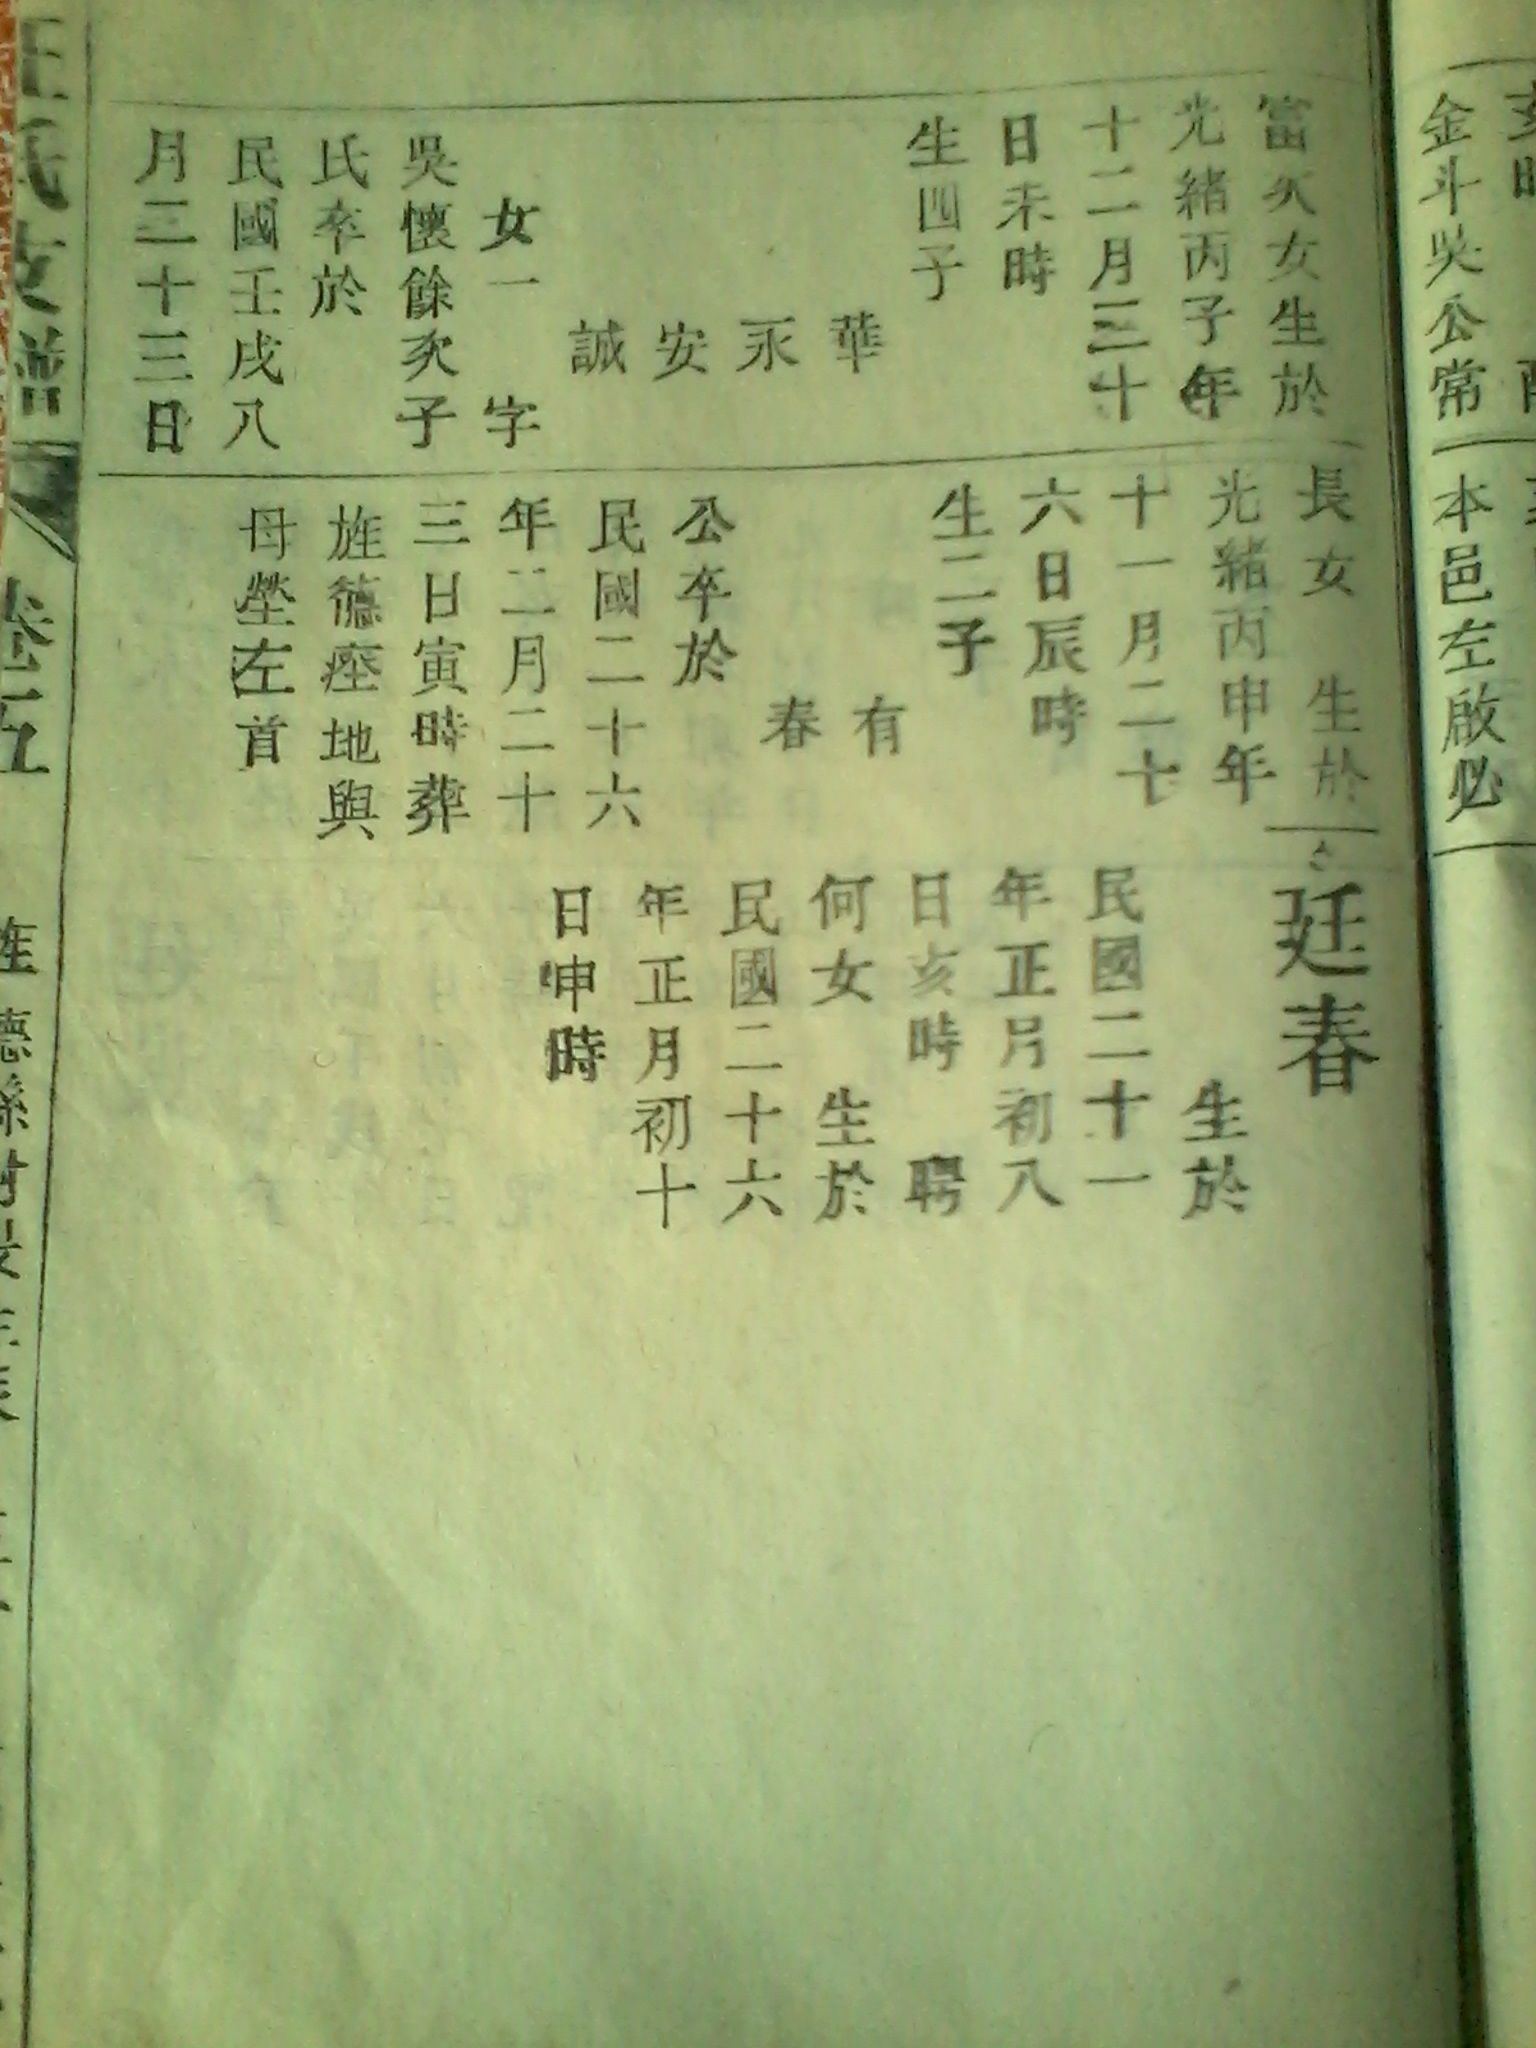 金斗吳公常
本邑左啟必
富次女生於
光緒丙子年
十二月三十
日未時
生四子
華
永
安
誠
女一 字
吳懷餘次子
氏卒於
民國壬戌八
月二十三日
長女 生於
光緒丙申年
十一月二十
六日辰時
生二子
有
春
公卒於
民國二十六
年二月二十
三日寅時葬
旌德座地與
母塋左首
廷春
生於
民國二十一
年正月初八
日亥時 聘
何女 生於
民國二十六
年正月初十
日申時
卷五